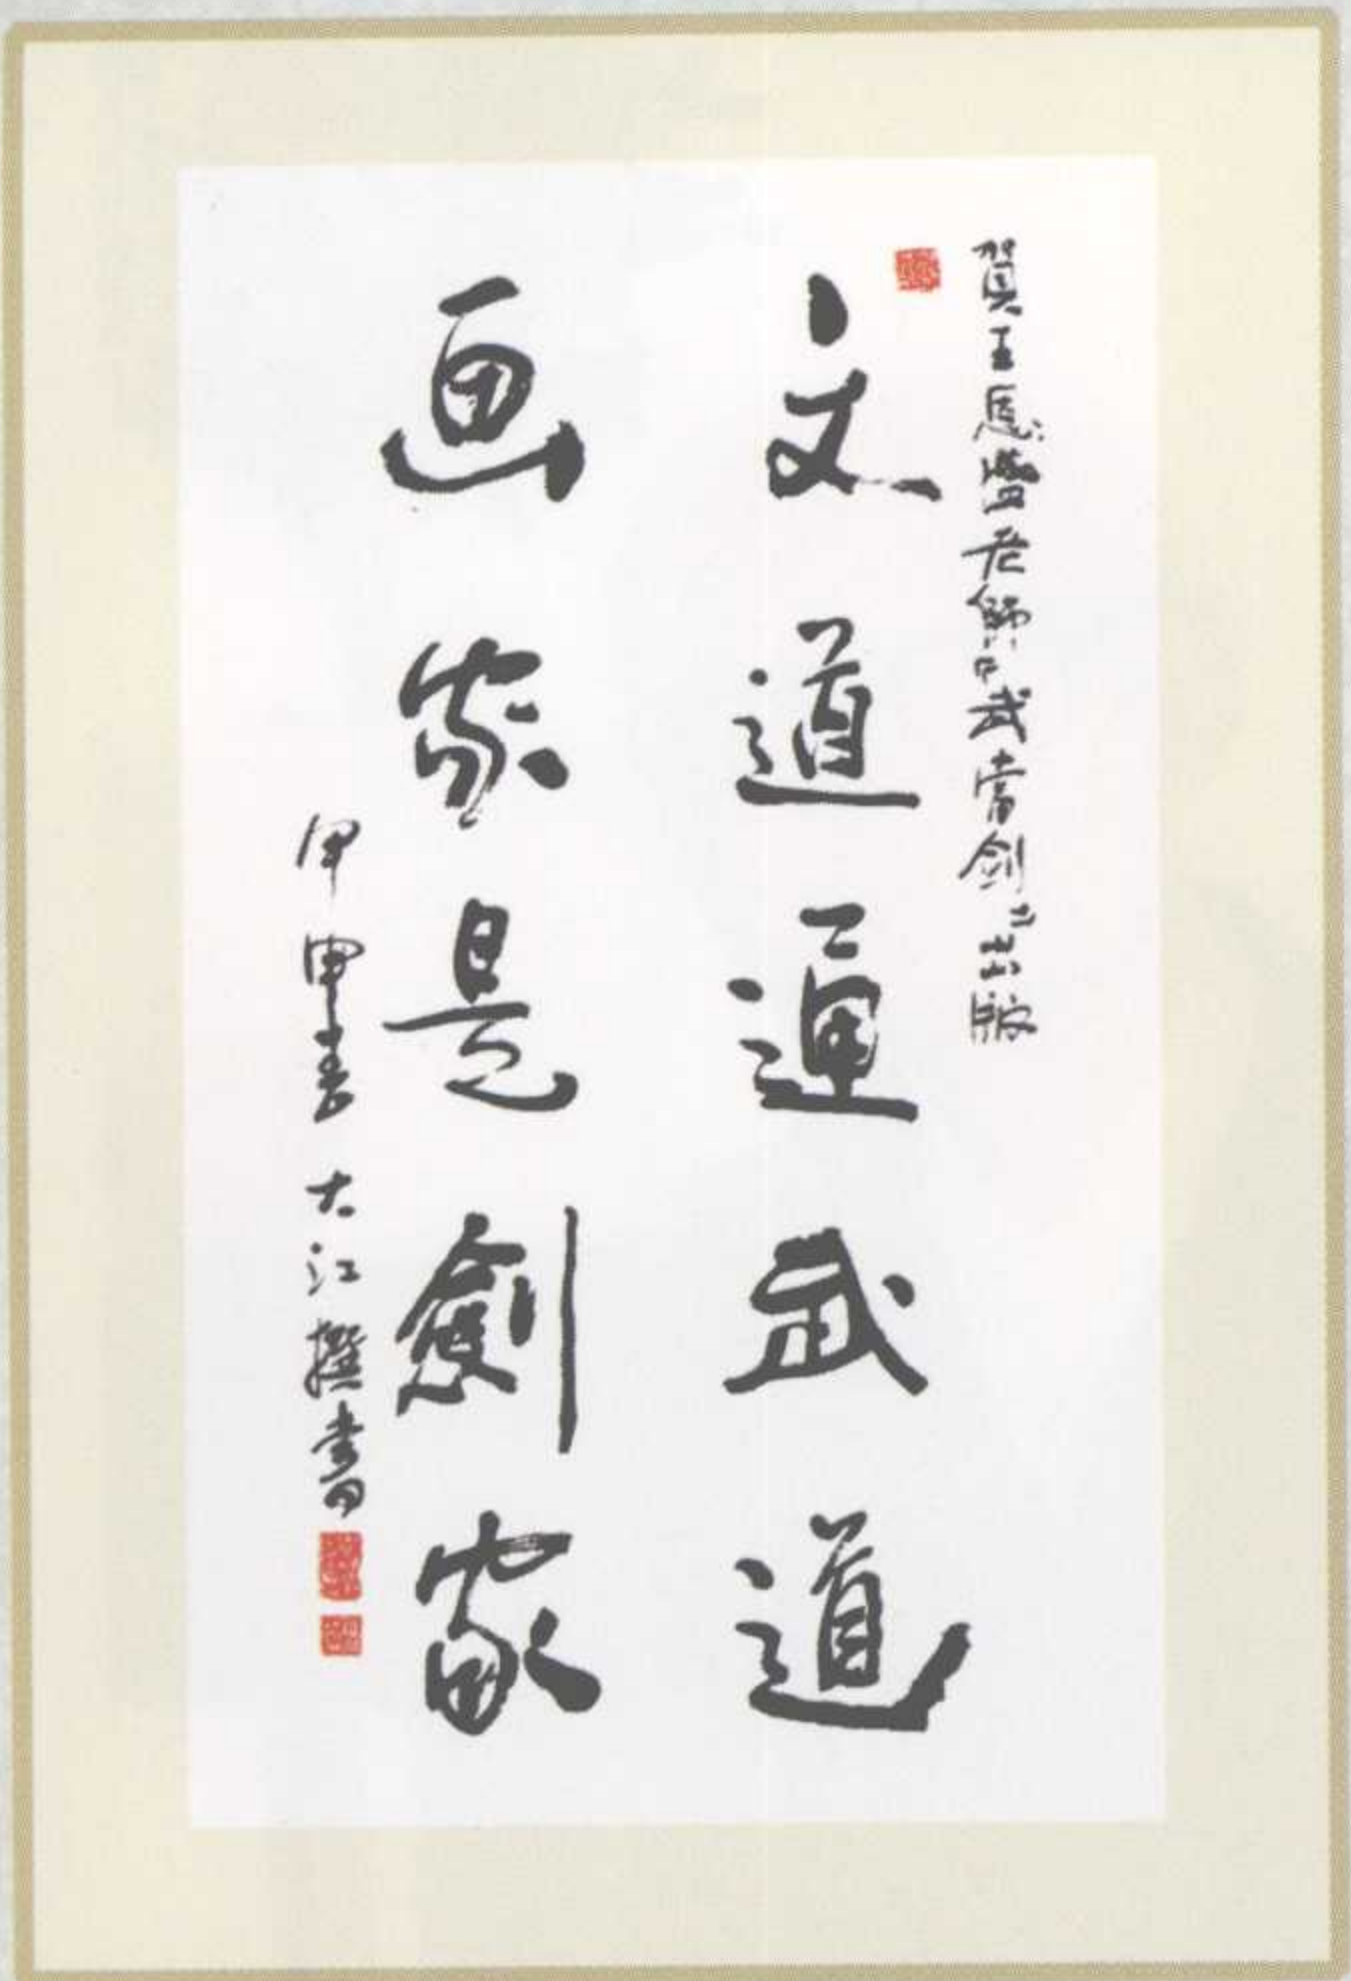 賀王恩盛老師《武當劍》出版
文道通武道
画家是劍家
甲申春 大江撰書